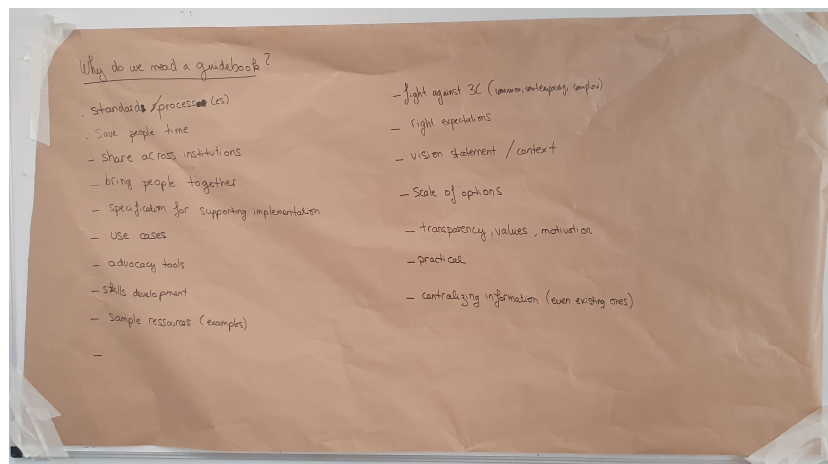 Why do we need a guidebook?
. standards/process(es)
. Save people time
- share across institutions
- bring people together
- specification for supporting implementation
- use cases
- advocacy tools
- skills development
- Sample ressources (examples)
-
- fight against 3C (common, contemporary, complex)
- right expectations
- vision statement / context
- Scale of options
- transparency, values, motivation
- practical
- centralizing information (even existing ones)